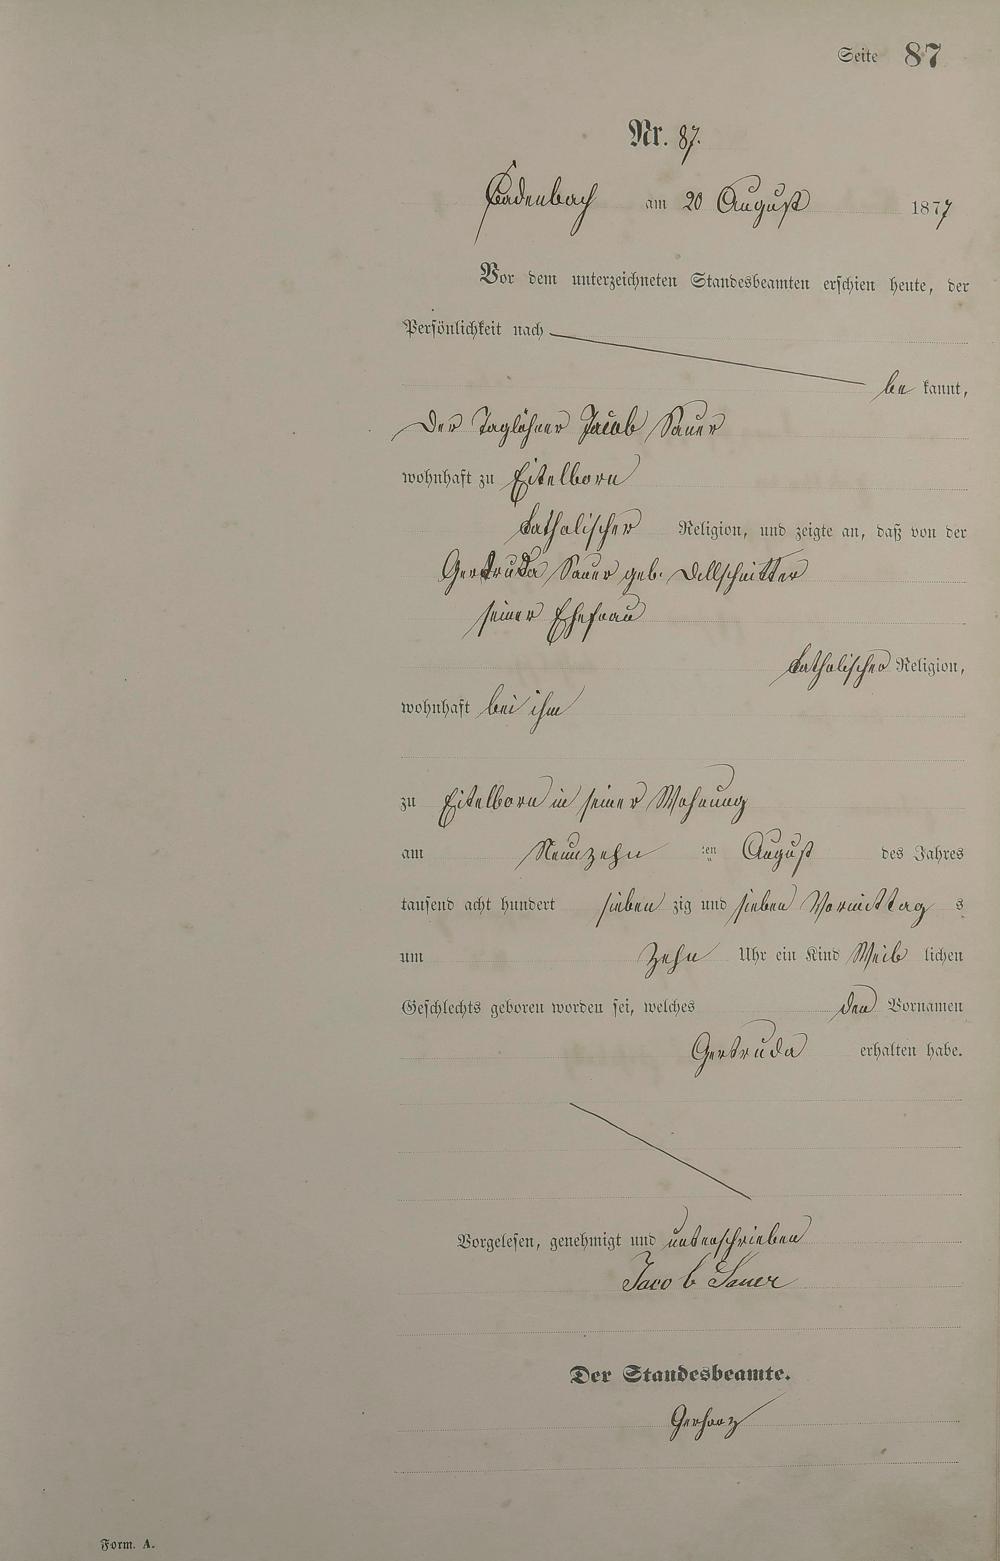 Seite 87
Nr. 87.
Cadenbach am 20 August 1877
Vor dem unterzeichneten Standesbeamten erschien heute, der
Persönlichkeit nach
be kannt,
Der Taglöhner Jacob Sauer
wohnhaft zu Eitelborn
katholischer Religion, und zeigte an, daß von der
Gertruda Sauer geb. Dillschnitter
seiner Ehefrau
katholischer Religion,
wohnhaft bei ihm
zu Eitelborn in seiner Wohnung
am Neunzehn ten August des Jahres
tausend acht hundert sieben zig und sieben Vormittag s
um Zehn Uhr ein Kind Weib lichen
Geschlechts geboren worden sei, welches den Vornamen
Gertruda erhalten habe.
Vorgelesen, genehmigt und unterschrieben
Jacob Sauer
Der Standesbeamte.
Gerharz
Form. A.